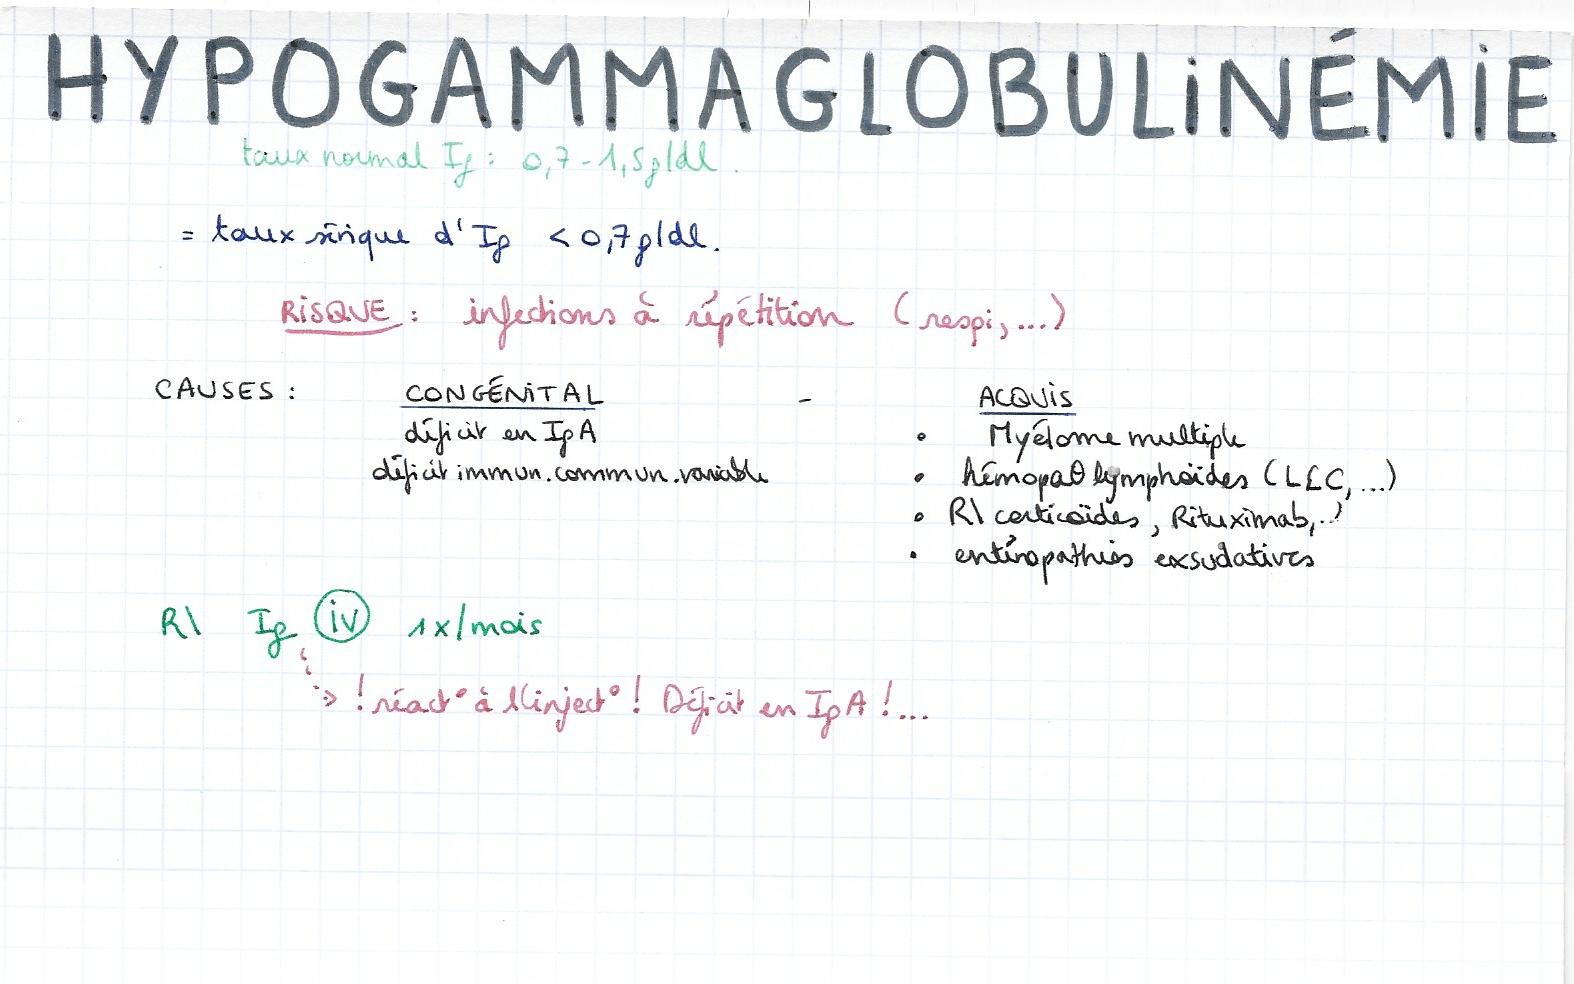 HYPOGAMMAGLOBULINÉMIE
taux normal Ig : 0,7 - 1,5g/dl.
= taux sérique d'Ig < 0,7g/dl.
RISQUE : infections à répétition (respi, ...)
CAUSES : CONGÉNITAL - ACQUIS
déficit en IgA
déficit immun. commun. variable
• Myélome multiple
• hémopaθ lymphoïdes (LLC, ...)
• R\ corticoïdes, Rituximab, ..)
• entéropathies exsudatives
R\ Ig iv 1x/mois
! réact° à l'inject° ! Déficit en IgA ! ...